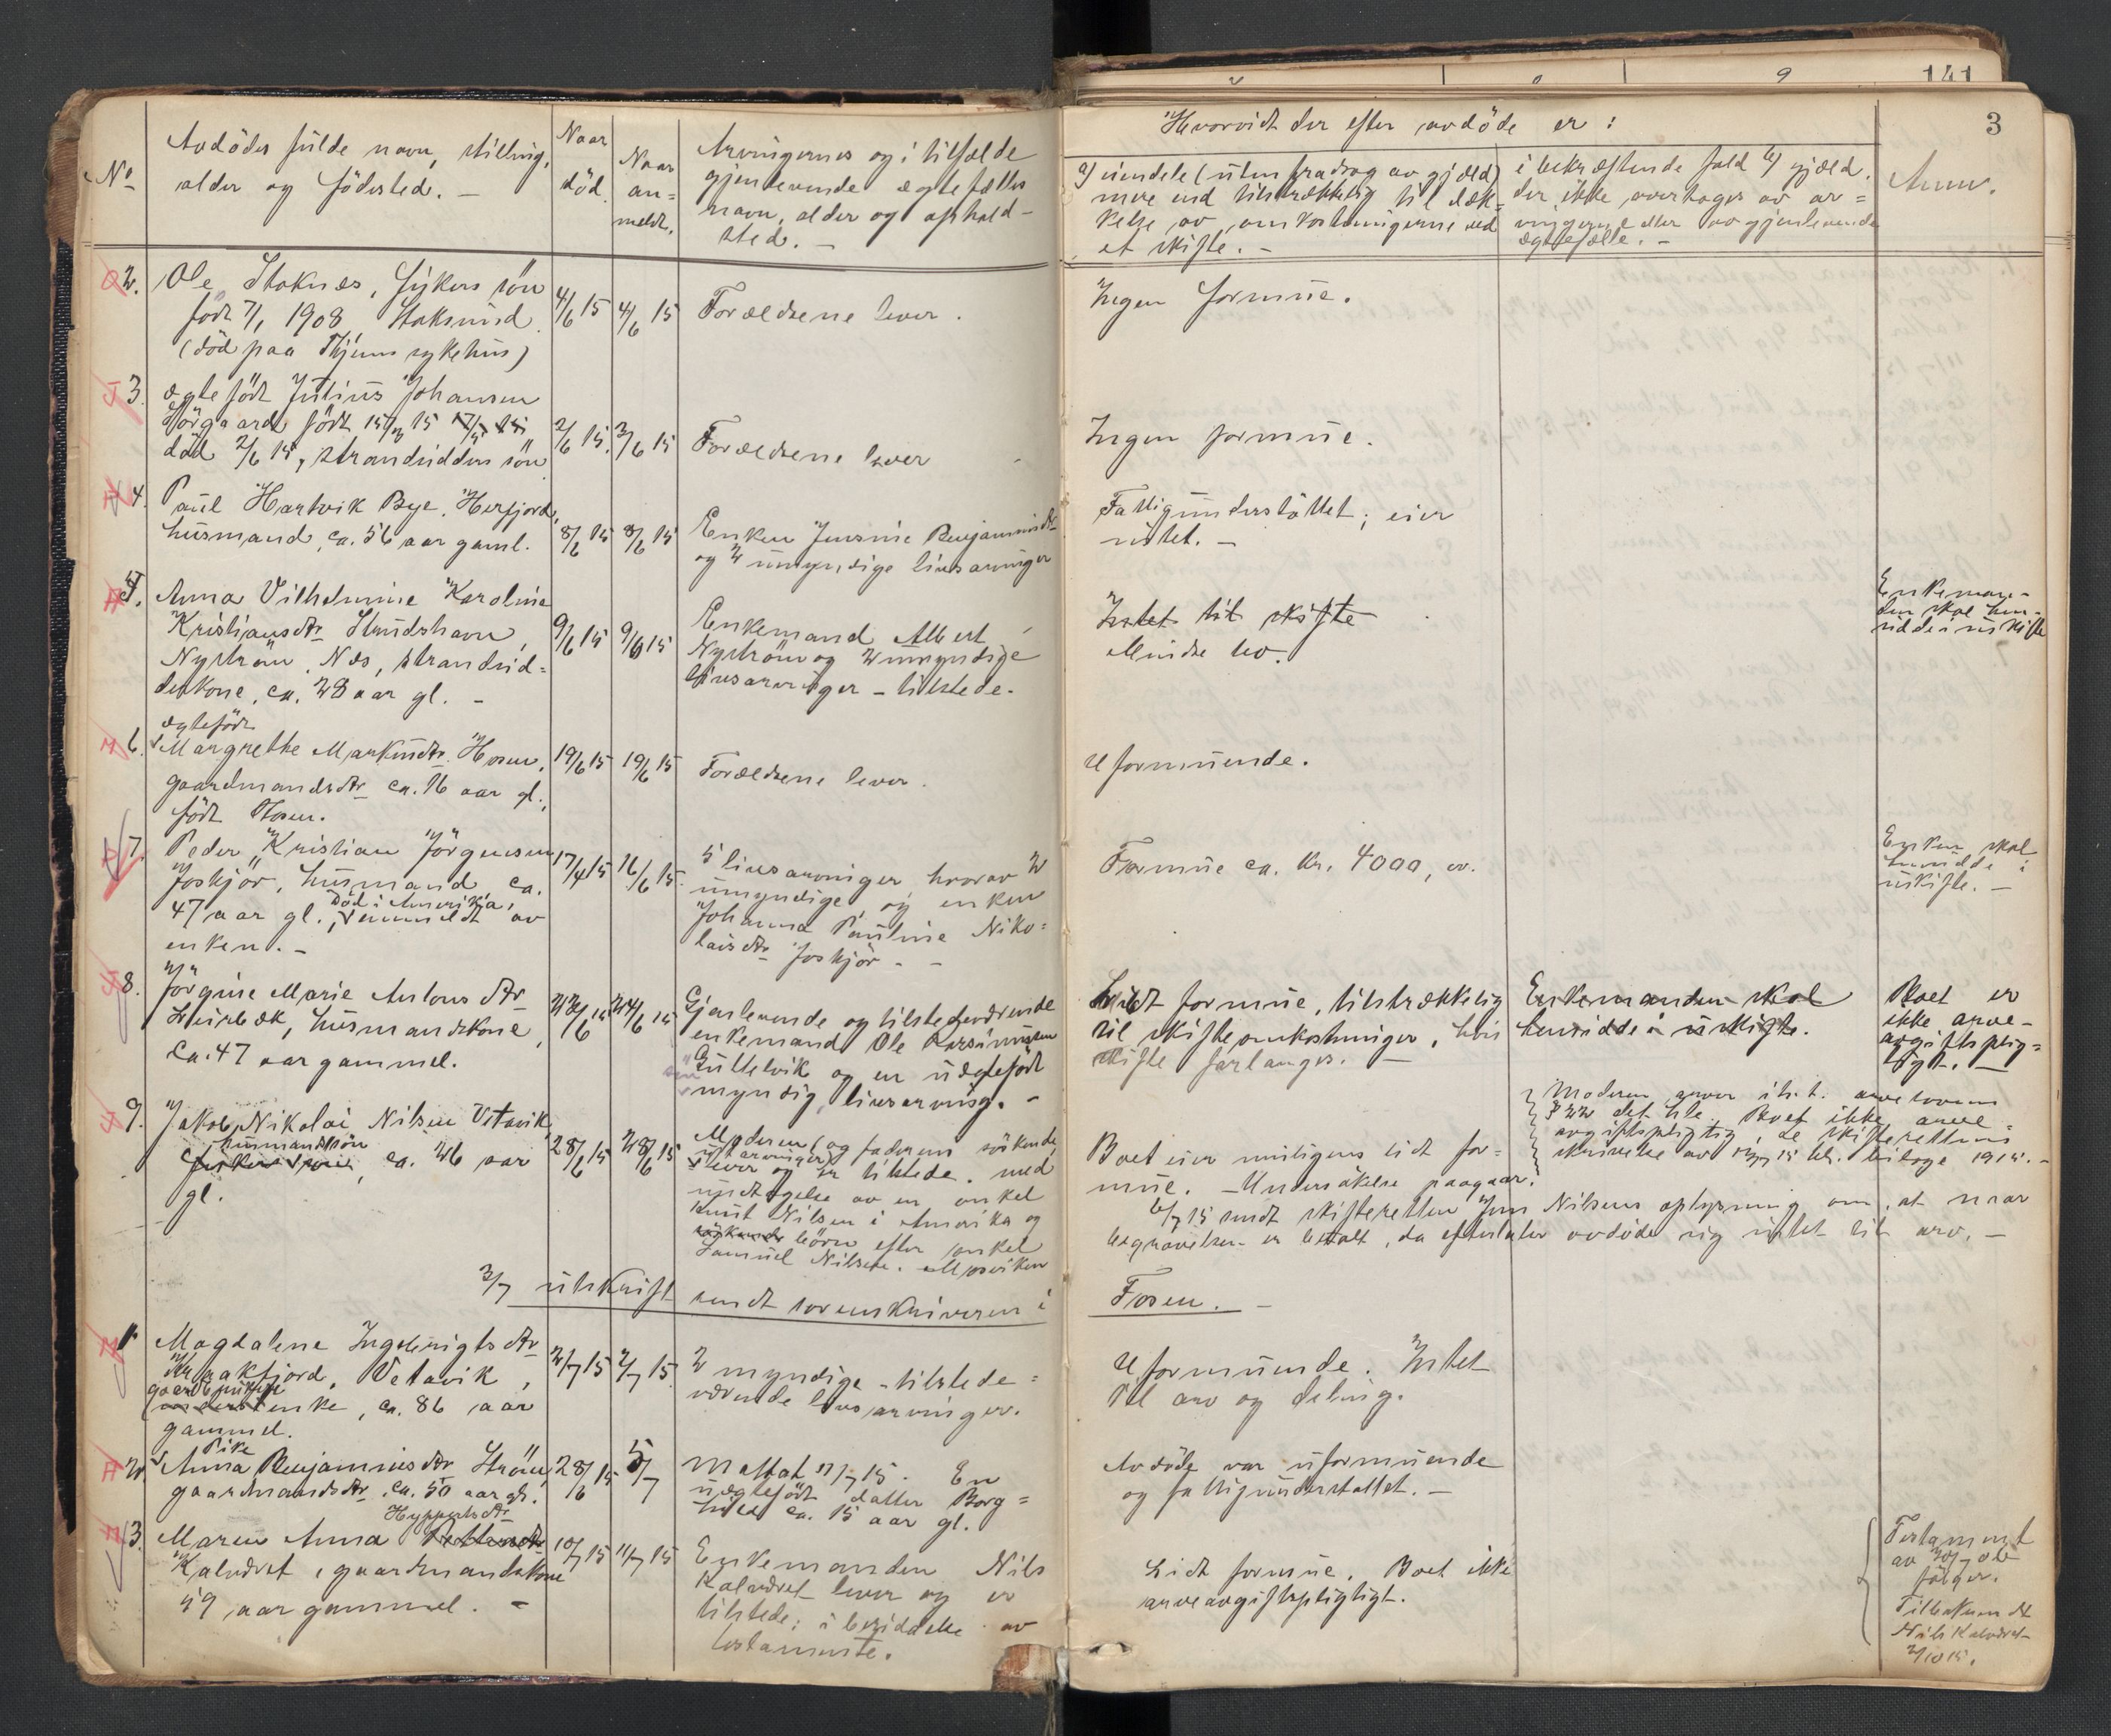 141
3
No
Avdödes fulde navn, stilling,
alder og födested. —
Naar
död.
Naar
an=
meldt.
Arvingernes og i tilfælde
gjenlevende ægtefælles
navn, alder og ophold-
sted. —
Hvorvidt der efter avdöde er :
a) eiendele (uten fradrag av gjæld)
mere end tilstrækkelig til dæk-
kelse av omkostningerne ved
et skifte. —
i bekræftende fald b) gjæld,
der ikke overtages av ar=
vingerne eller av gjenlevende
ægtefælle. —
Anm.
2.
Ole Stoknes, fiskers sön
födt 7/1 1908, Stoksund.
(död paa Thjems sykehus)
4/6 15
4/6 15
Forældrene lever.
Ingen formue.
3.
ægtefödt Julius Johansen
födt 15 15
död 2/6 15, strandsidders sön
2/6 15.
3/6 15
Forældrene lever
Ingen formue.
4.
Paul Hartvik Bye, Herfjord,
husmand, ca. 56 aar gaml.
8/6 15
8/6 15
Enken Jensine Benjaminsdtr
og 2 umyndige livsarvinger
Fattigunderstöttet; eier
intet. —
5.
Anna Vilhelmine Karoline
Kristiansdtr
Nyström, Næs, strandsid=
derkone, ca. 28 aar gl. —
9/6 15
9/6 15
Enkemand Albert
Nyström og 2 umyndige
livsarvinger – tilstede.
Intet til skifte
Mindre bo.
Enkeman-
den skal hen-
sidde i uskifte
6.
ægtefödt
Margrethe Markusdtr. Hosen,
gaardmandsdtr ca. 16 aar gl.,
födt Hosen.
19/6 15
19/6 15
Forældrene lever.
Uformuende.
7.
Peder Kristian Jörgensen
Joskjör, husmand, ca.
47 aar gl., död i Amerika, anmeldt av
enken. —
17/4 15
16/6 15.
5 livsarvinger, hvorav 2
umyndige, og enken
Johanna Pauline Niko=
laisdtr Joskjör. —
Formue ca. kr. 4000, er.
Enken skal
hensidde i
uskifte. —
8.
Jörgine Marie Antonsdtr
husmandskone,
ca. 47 aar gammel.
24/6 15
Gjenlevende og tilstedeværende
enkemand Ole Rasmussen
og en uægtefödt
myndig livsarving. —
Lidt formue, tilstrækkelig
til skifteomkostninger, hvis
skifte forlanges. —
Enkemanden skal
hensidde i uskifte.
Boet er
ikke arve-
avgiftsplig=
tigt. —
9.
Jakob Nikolai Nilsen Vetavik
husmandssön
ca. 26 aar
gl.
28/6 15
28/6 15
Moderen (og faderens söskende
utarvinger)
lever og er tilstede, med
undtagelse av en onkel
Knut Nilsen i Amerika og
börn efter onkel
Samuel Nilsen.
Boet eier muligens lidt for-
mue. — Undersökelse paagaar.
Moderen arver i h.t. arveloven
§ 22 det hele. Boet ikke arve-
avgiftspligtig, se skifterettens
skrivelse av 15 1915. —
6/7 15 sendt skifteretten Jens Nilsens oplysning om, at naar
begravelsen er betalt, da efterlater avdöde sig intet til arv. —
3/7 utskrift sendt sorenskriveren i
Fosen. —
1.
Magdalene Ingebrigtsdtr
Vetavik,
enke, ca. 86 aar
gammel.
2/7 15
2/7 15
2 myndige – tilstede=
værende livsarvinger.
Uformuende. Intet
til arv og deling.
2.
Pike
Anna Benjaminsdtr Ström,
gaardmandsdtr, ca. 50 aar gl.
28/6 15
5/7
Mottat 11/7 15. En
uægtefödt datter Borg=
hild ca. 15 aar gl.
Avdöde var uformuende
og fattigunderstöttet. —
3.
Maren Anna
Kalvdret, gaardmandskone
59 aar gammel. —
10/7 15
11/7 15
Enkemanden Nils
Kalvdret lever og er
tilstede; i besiddelse av
testamente.
Lidt formue. Boet ikke
arveavgiftspligtigt.
Testament
av
fölger.
Tilbakesendt
Nils Kalvdret
2/10 15.